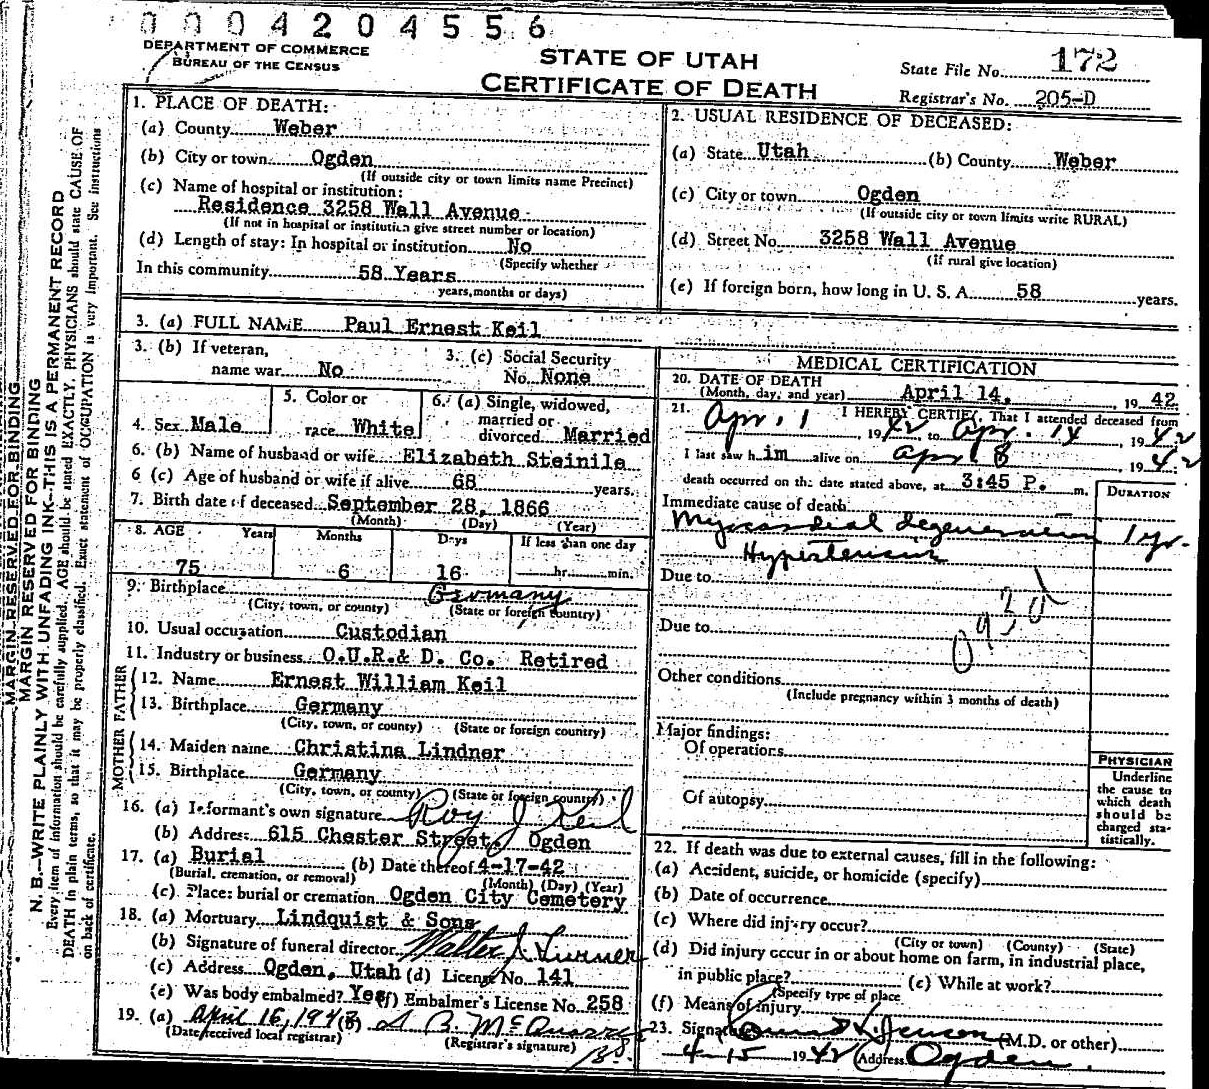 0004204556
DEPARTMENT OF COMMERCE
BUREAU OF THE CENSUS
STATE OF UTAH
CERTIFICATE OF DEATH
State File No. 172
Registrar's No. 205-D
MARGIN RESERVED FOR BINDING
MARGIN RESERVED FOR BINDING
N. B.—WRITE PLAINLY WITH UNFADING INK—THIS IS A PERMANENT RECORD
Every item of information should be carefully supplied. AGE should be stated EXACTLY. PHYSICIANS should state CAUSE OF
DEATH in plain terms, so that it may be properly classified. Exact statement of OCCUPATION is very important. See instructions
on back of certificate.
1. PLACE OF DEATH:
(a) County Weber
(b) City or town Ogden
(If outside city or town limits name Precinct)
(c) Name of hospital or institution:
Residence 3258 Wall Avenue
(If not in hospital or institution give street number or location)
(d) Length of stay: In hospital or institution No
(Specify whether
In this community 58 Years
years, months or days)
2. USUAL RESIDENCE OF DECEASED:
(a) State Utah (b) County Weber
(c) City or town Ogden
(If outside city or town limits write RURAL)
(d) Street No. 3258 Wall Avenue
(If rural give location)
(e) If foreign born, how long in U. S. A. 58 years.
3. (a) FULL NAME Paul Ernest Keil
3. (b) If veteran,
name war No
3. (c) Social Security
No. None
4. Sex Male
5. Color or
race White
6. (a) Single, widowed,
married or
divorced Married
6. (b) Name of husband or wife Elizabeth Steinile
6 (c) Age of husband or wife if alive 68 years.
7. Birth date of deceased September 28, 1866
(Month) (Day) (Year)
8. AGE Years Months Days If less than one day
75 6 16 hr. min.
9. Birthplace Germany
(City, town, or county) (State or foreign country)
10. Usual occupation Custodian
11. Industry or business O.U.R.& D. Co. Retired
FATHER
12. Name Ernest William Keil
13. Birthplace Germany
(City, town, or county) (State or foreign country)
MOTHER
14. Maiden name Christina Lindner
15. Birthplace Germany
(City, town, or county) (State or foreign country)
16. (a) Informant's own signature Roy J Keil
(b) Address 615 Chester Street, Ogden
17. (a) Burial (b) Date thereof 4-17-42
(Burial, cremation, or removal) (Month) (Day) (Year)
(c) Place: burial or cremation Ogden City Cemetery
18. (a) Mortuary Lindquist & Sons
(b) Signature of funeral director Walter
(c) Address Ogden, Utah (d) License No. 141
(e) Was body embalmed? Yes (f) Embalmer's License No. 258
19. (a) April 16, 1942 (b)
(Date received local registrar) (Registrar's signature)
MEDICAL CERTIFICATION
20. DATE OF DEATH
(Month, day, and year) April 14, 19 42
21. I HEREBY CERTIFY, That I attended deceased from
Apr. 1, 19 42 to Apr. 14, 19 42
I last saw h im alive on Apr 8, 19 42
death occurred on the date stated above, at 3:45 P. m.
DURATION
Immediate cause of death
Myocardial degeneration 1 yr.
Hypertension
Due to
Due to
Other conditions
(Include pregnancy within 3 months of death)
Major findings:
Of operations
Of autopsy
PHYSICIAN
Underline
the cause to
which death
should be
charged sta-
tistically.
22. If death was due to external causes, fill in the following:
(a) Accident, suicide, or homicide (specify)
(b) Date of occurrence
(c) Where did injury occur?
(City or town) (County) (State)
(d) Did injury occur in or about home on farm, in industrial place,
in public place? (e) While at work?
(Specify type of place
(f) Means of injury
23. Signature (M.D. or other)
4-15 19 42 Address Ogden